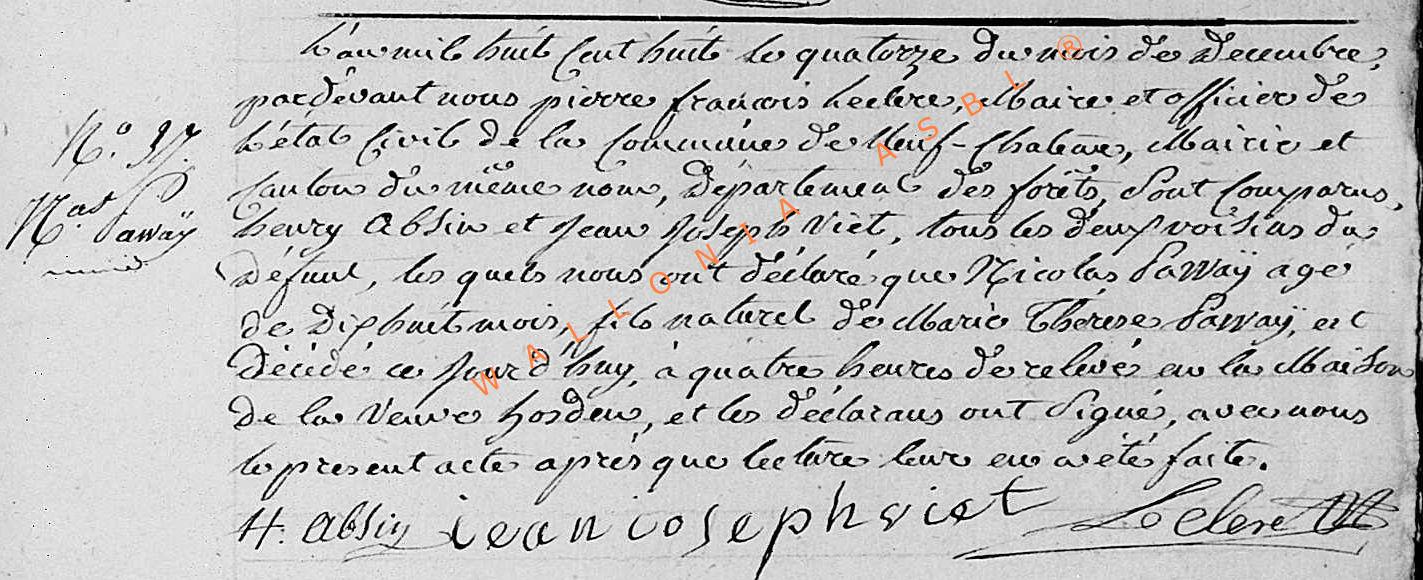 L'an mil huit cent huit le quatorze du mois de Decembre,
pardevant nous pierre françois Leclere, Maire et officier de
L'état Civil de la Commune de Neuf-Chateau, Mairie et
Canton du même nom, Département des forêts, sont comparus,
henry Absin et Jean Joseph Viet, tous les deux voisins du
Défunt, les quels nous ont déclaré que Nicolas Pawaÿ agé
de Dix huit mois, fils naturel de Marie Thérèse Pawaÿ, est
Décédé ce jourd'huy, à quatre heures de relevé en la Maison
de la Veuve hosdeu, et les déclarans ont signé, avec nous
le present acte après que lecture leur en a été faite.
N.° 37.
N.as Pawaÿ
H. Absin jean joseph viet Leclere
WALLONIA ASBL ®